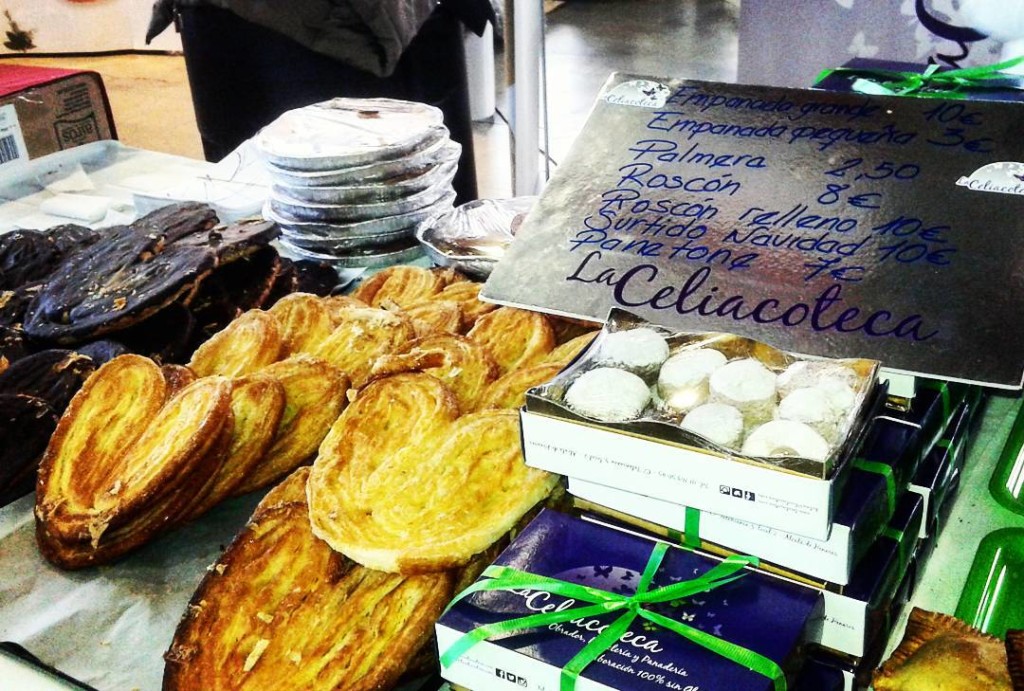 LaCeliacoteca
Empanada grande 10€
Empanada pequeña 3€
Palmera 2,50
Roscón 8€
Roscón relleno 10€
Surtido Navidad 10€
Panetone 7€
LaCeliacoteca
LaCeliacoteca
Obrador,
y Panadería
100% sin